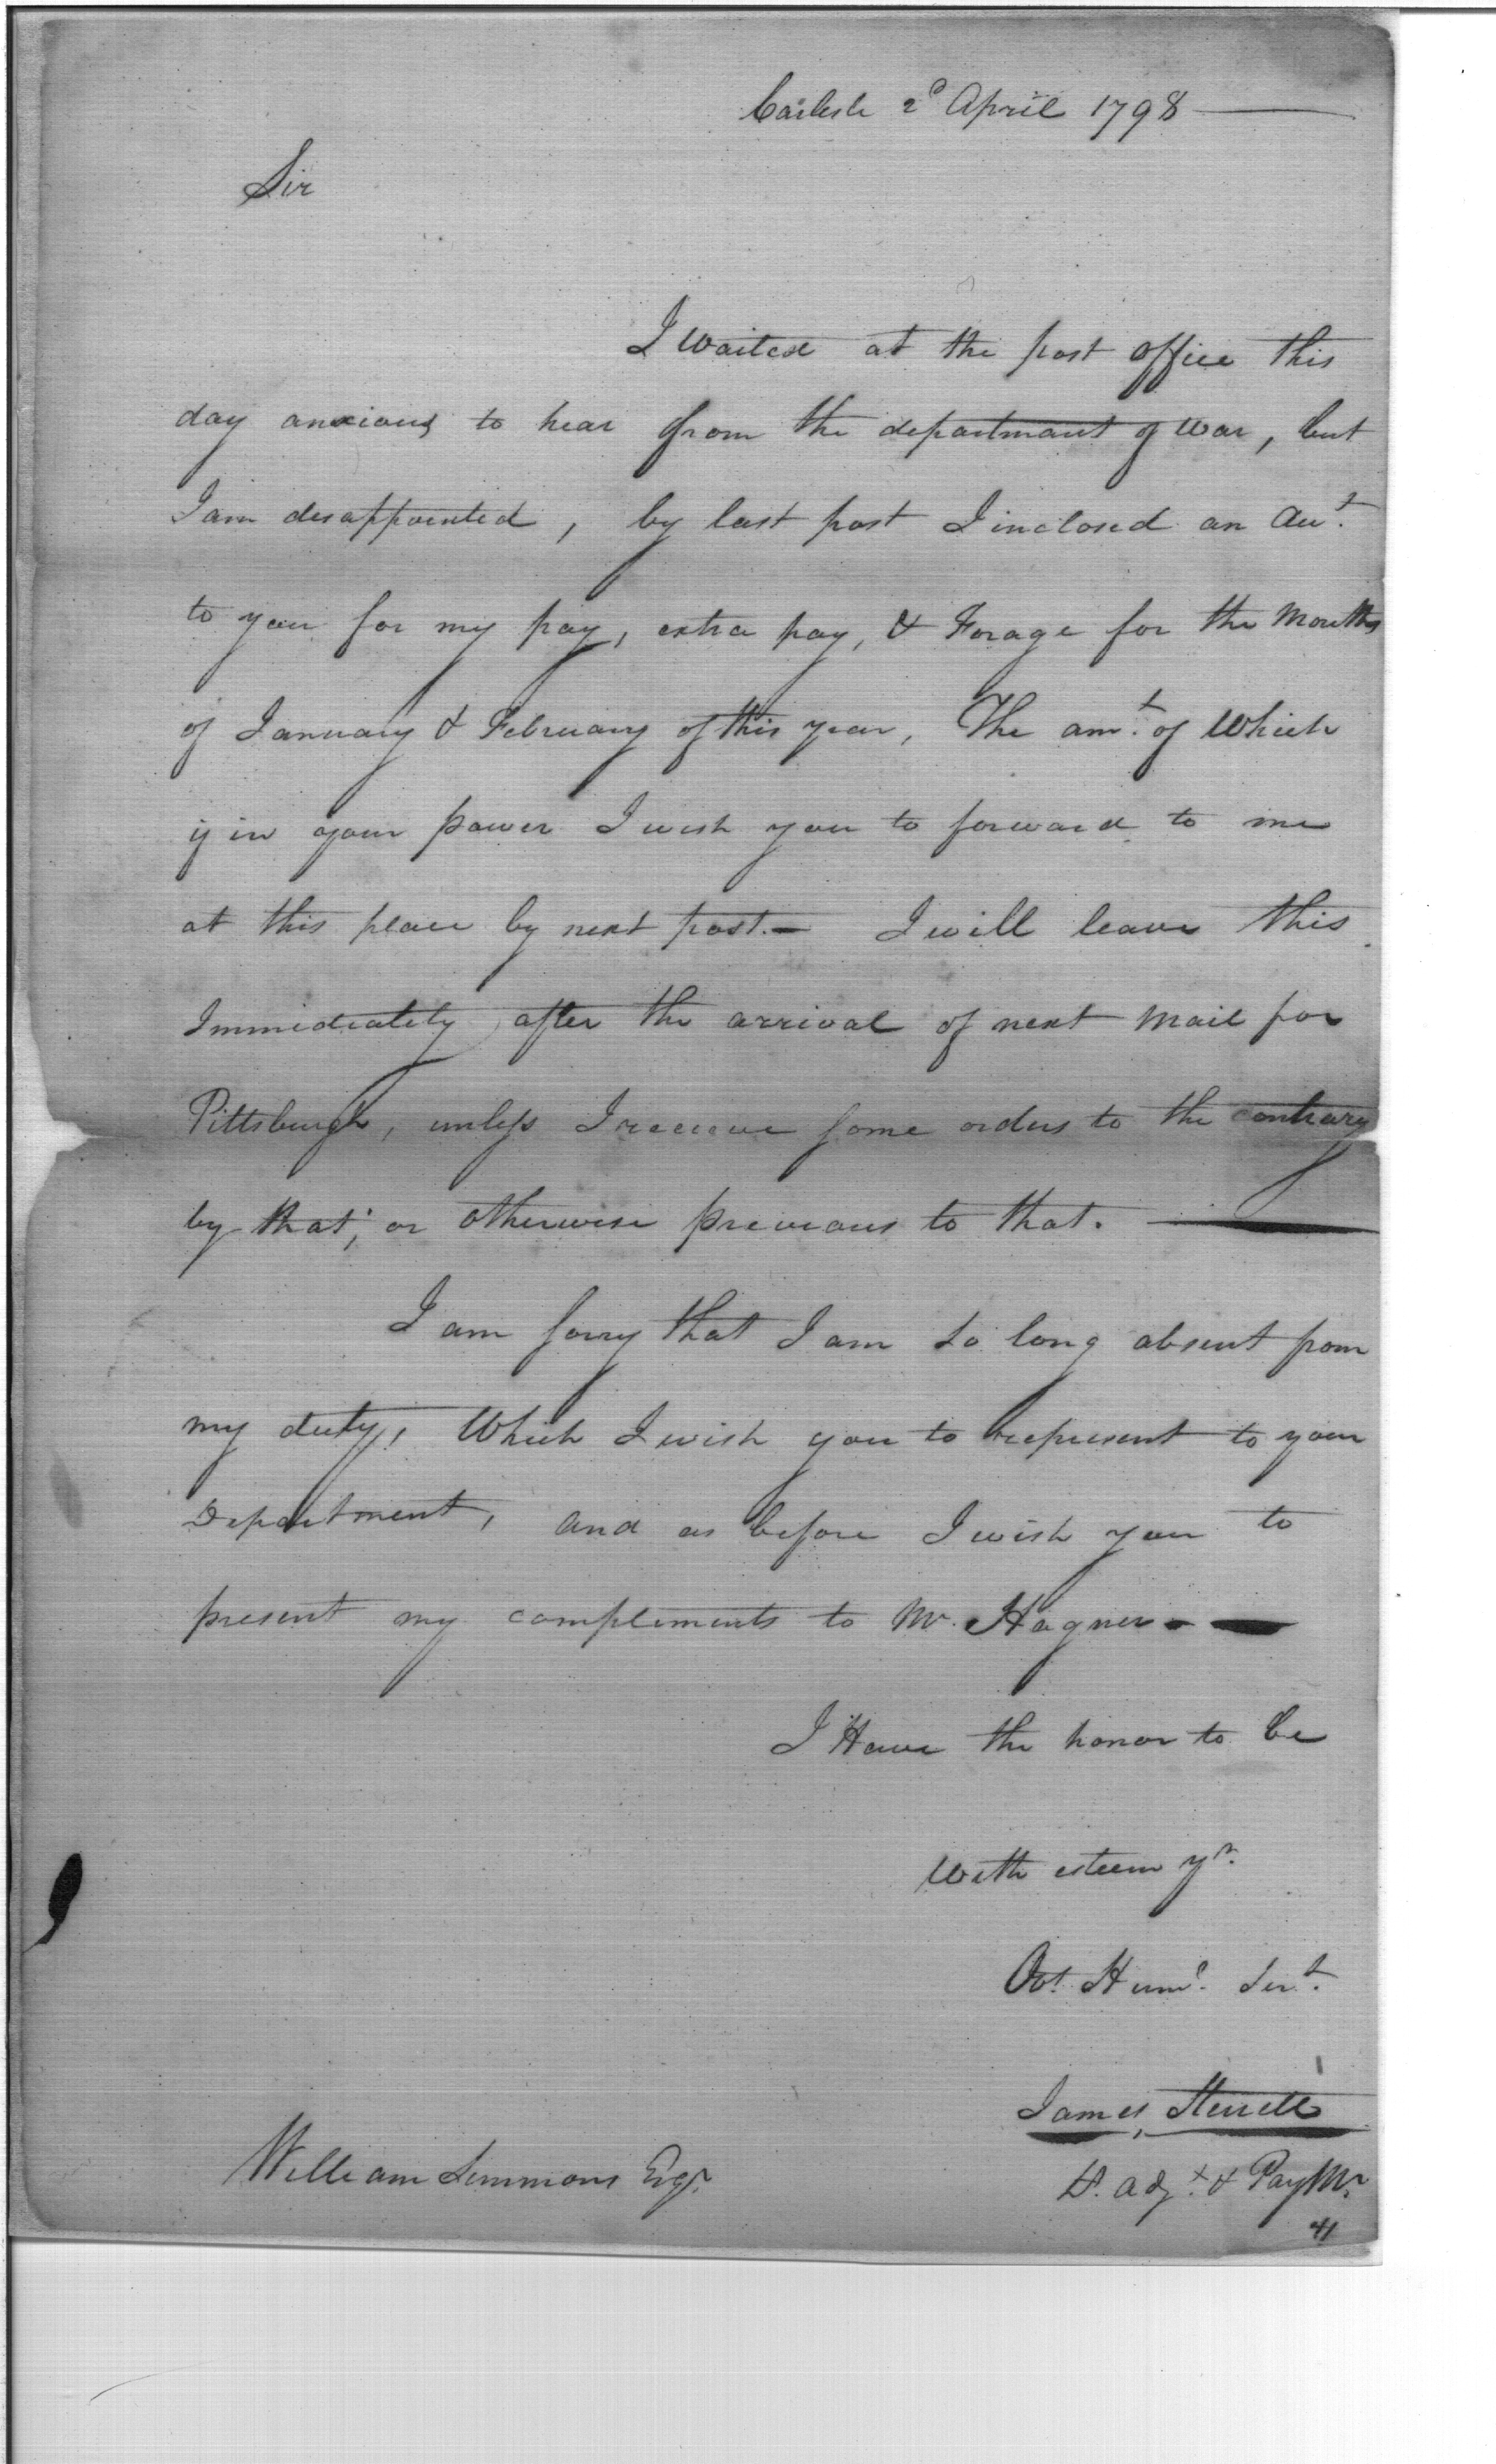 Carlisle 2d April 1798
Sir
I waited at the post office this
day anxious to hear from the departmant of war, but
I am desappointed, by last post I inclosed an Acct.
to you for my pay, extra pay, & Forage for the Months
of January & February of this year, The amt. of Which
if in your power I wish you to forward to me
at this place by next post. — I will leave this
Immediately after the arrival of next Mail for
Pittsburgh, unless I receive some orders to the contrary
by that; or otherwise previous to that. —
I am sorry that I am so long absent from
my duty, Which I wish you to represent to your
Department, and as before I wish you to
present my complements to Mr. Hagner - —
I Have the honor to be
With esteem yr.
Obt. Humb. Sert.
James Sterrett
D. Adjt. & PayMr.
William Simmons Esqr.
41